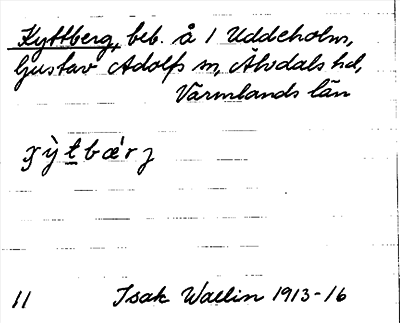 Kyttberg, beb. å 1 Uddeholm,
Gustav Adolfs sn, Älvdals hd,
Värmlands län
11 Isak Wallin 1913-16